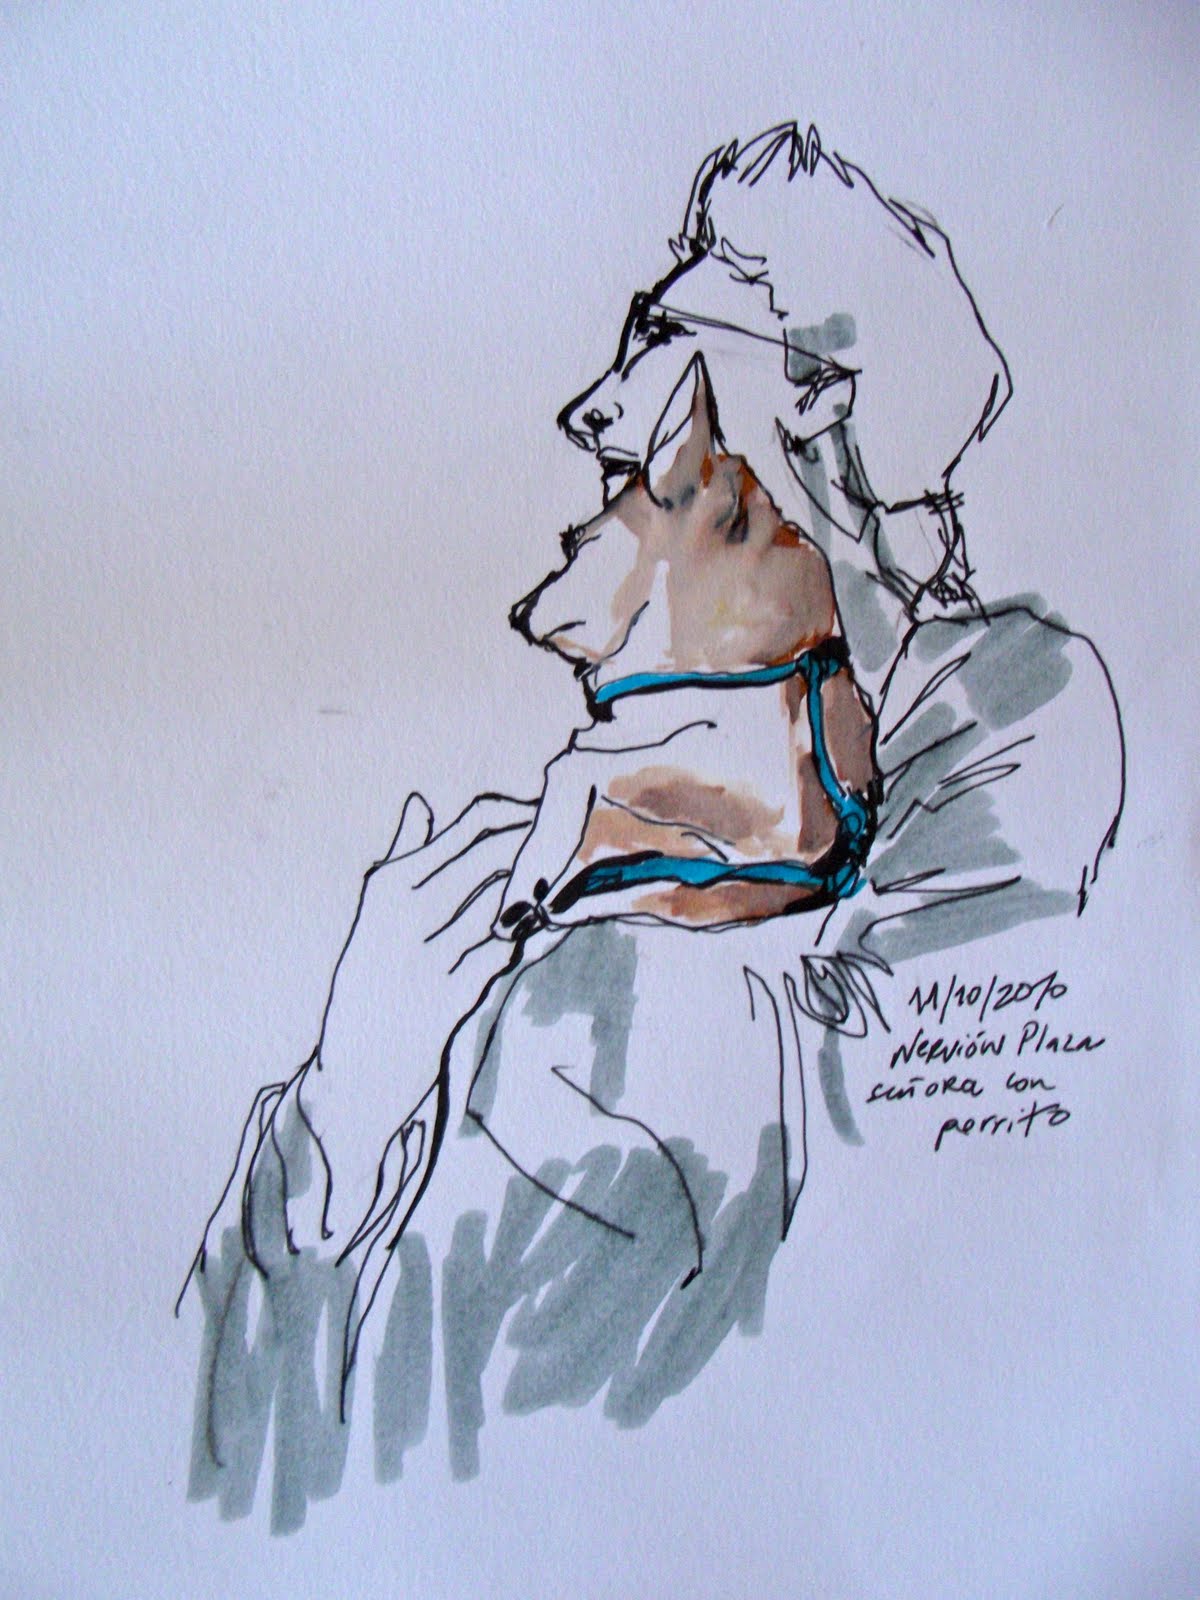 11/10/2010
Nervión Plaza
señora con
perrito